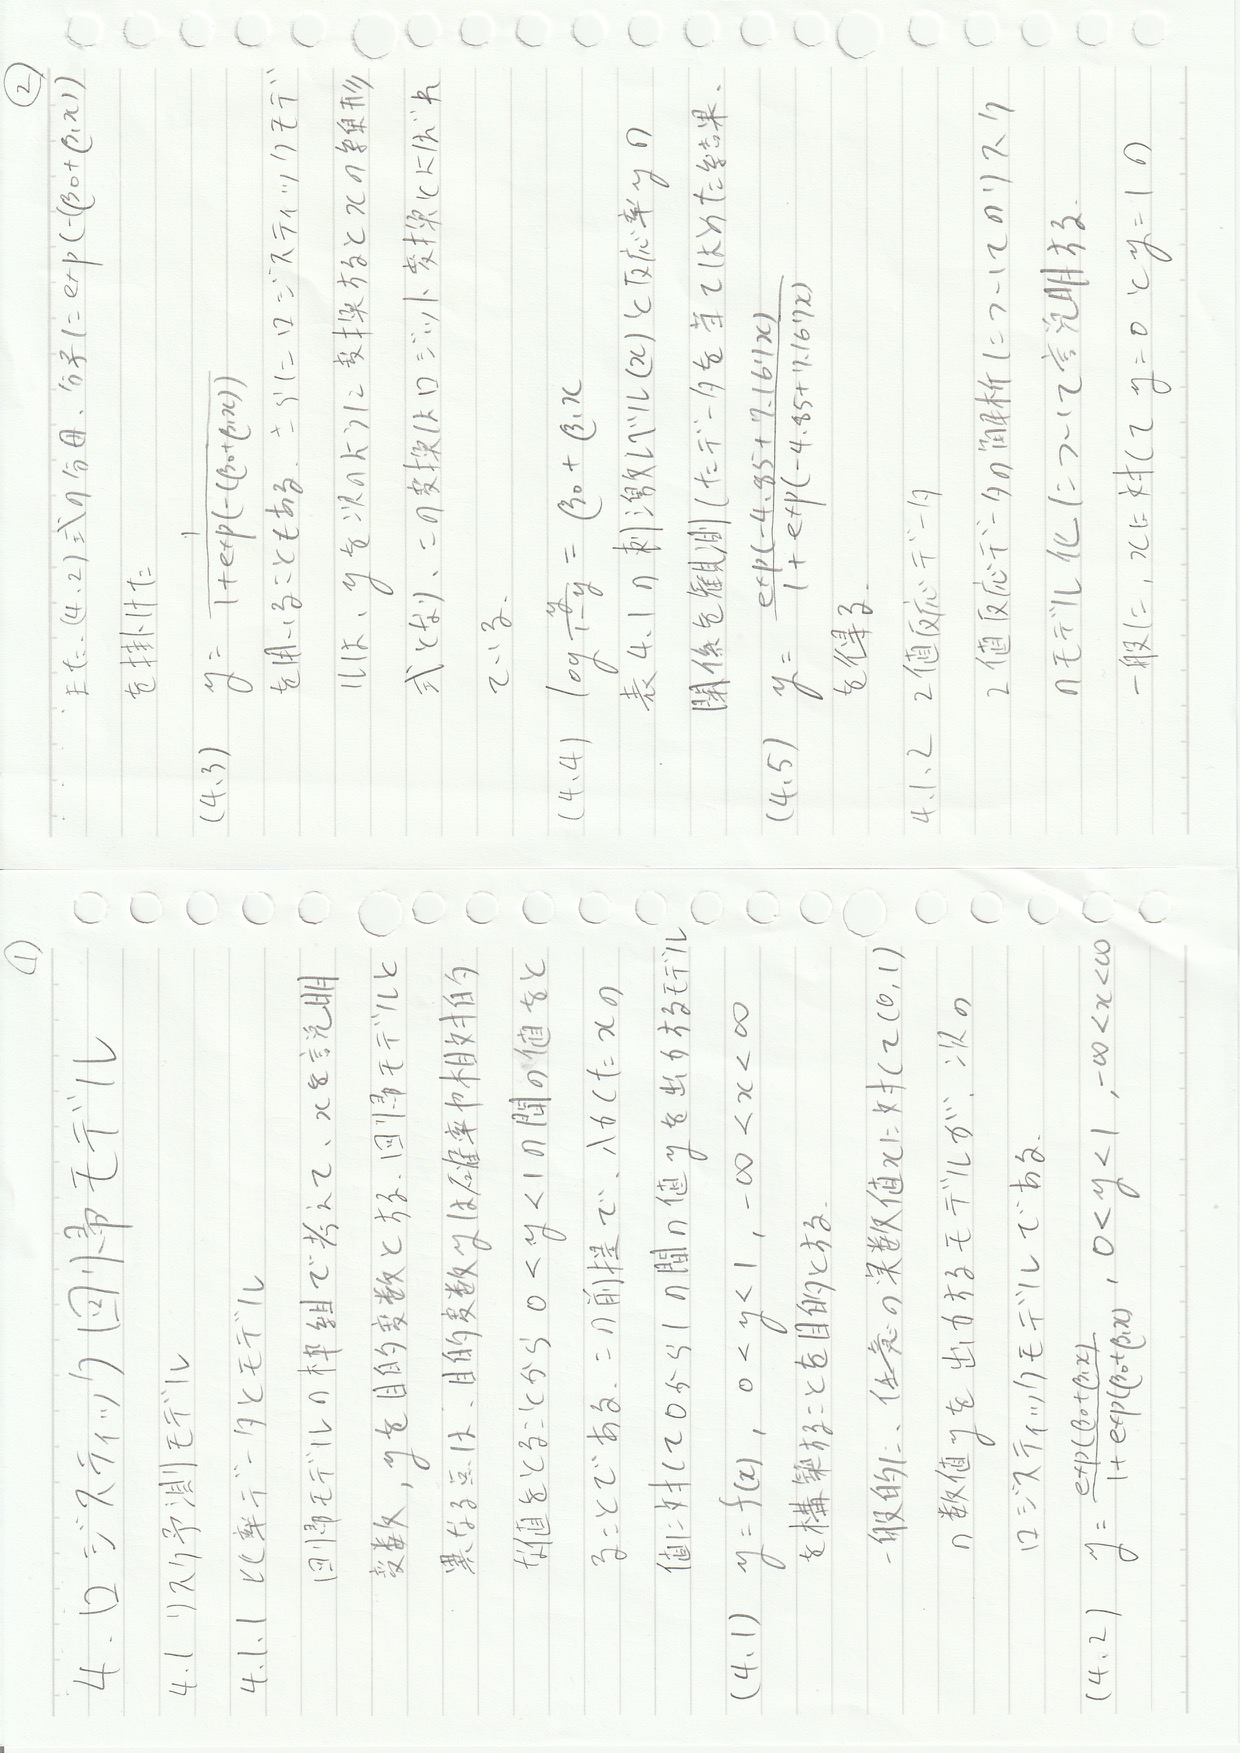 ①
4. ロジスティック回帰モデル
4.1 リスク予測モデル
4.1.1 比率データとモデル
回帰モデルの枠組で考えて、xを説明
変数, yを目的変数とする. 回帰モデルと
異なる点は、目的変数yは確率や相対的
な値をとることから 0 < y < 1 の間の値をと
ることである. この前提で、入力したxの
値に対して0から1の間の値yを出力するモデル
(4.1) y = f(x), 0 < y < 1, -∞ < x < ∞
を構築することを目的とする.
一般的に、任意の実数値xに対して(0,1)
の数値yを出力するモデルが、次の
ロジスティックモデルである.
(4.2) y = exp(β0+β1x) / 1+exp(β0+β1x), 0 < y < 1, -∞ < x < ∞
②
また、(4.2)式の分母、分子に exp(-(β0+β1x))
を掛けた
(4.3) y = 1 / 1+exp(-(β0+β1x))
を用いることもある. さらにロジスティックモデ
ルは、yを次のように変換するとxの線形
式となり、この変換はロジット変換とよばれ
ている.
(4.4) log y/1-y = β0 + β1x
表4.1の刺激レベル(x)と反応率yの
関係を観測したデータを当てはめた結果、
(4.5) y = exp(-4.85+7.167x) / 1+exp(-4.85+7.167x)
を得る.
4.1.2 2値反応データ
2値反応データの解析についてのリスク
のモデル化について説明する.
一般に, xに対して y=0 と y=1 の